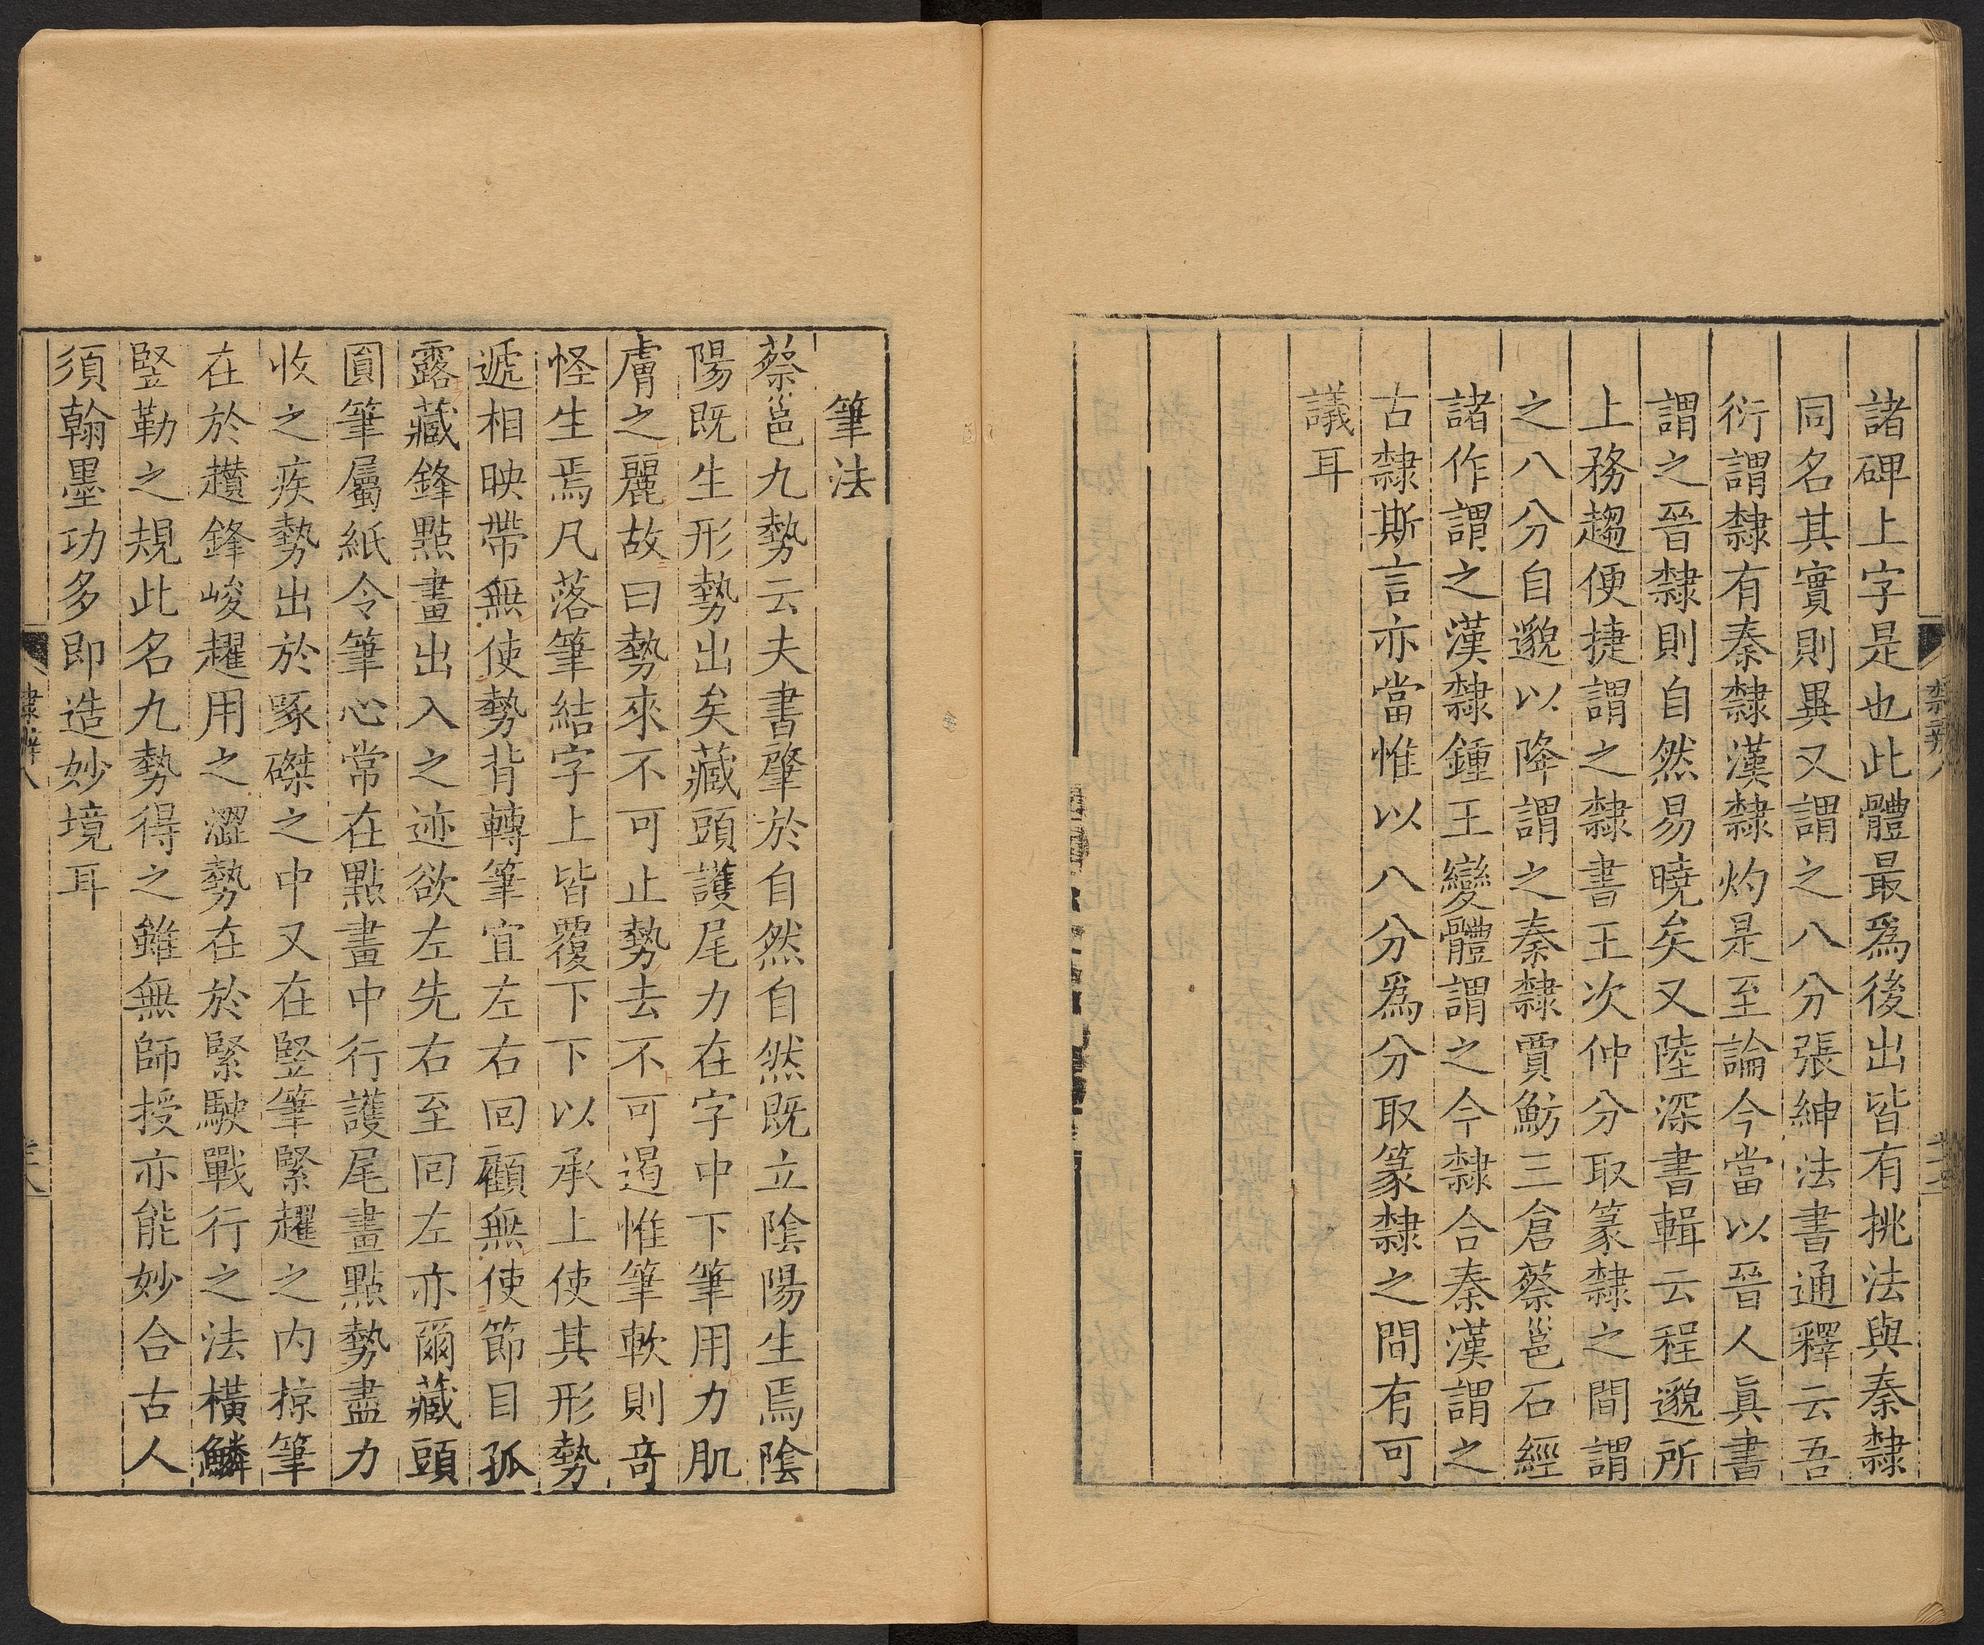 諸碑上字是也此體最爲後出皆有挑法與秦隸
同名其實則異又謂之八分張紳法書通釋云吾
衍謂隸有秦隸漢隸灼是至論今當以晉人眞書
謂之晉隸則自然易曉矣又陸深書輯云程邈所
上務趨便捷謂之隸書王次仲分取篆隸之間謂
之八分自邈以降謂之秦隸賈魴三倉蔡邕石經
諸作謂之漢隸鍾王變體謂之今隸合秦漢謂之
古隸斯言亦當惟以八分爲分取篆隸之間有可
議耳
筆法
蔡邕九勢云夫書肇於自然自然既立陰陽生焉陰
陽既生形勢出矣藏頭護尾力在字中下筆用力肌
膚之麗故曰勢來不可止勢去不可遏惟筆軟則奇
怪生焉凡落筆結字上皆覆下下以承上使其形勢
遞相映帶無使勢背轉筆宜左右回顧無使節目孤
露藏鋒點畫出入之迹欲左先右至回左亦爾藏頭
圓筆屬紙令筆心常在點畫中行護尾畫點勢盡力
收之疾勢出於啄磔之中又在竪筆緊趯之内掠筆
在於趲鋒峻趯用之澀勢在於緊駛戰行之法橫鱗
竪勒之規此名九勢得之雖無師授亦能妙合古人
須翰墨功多即造妙境耳
隸辨八